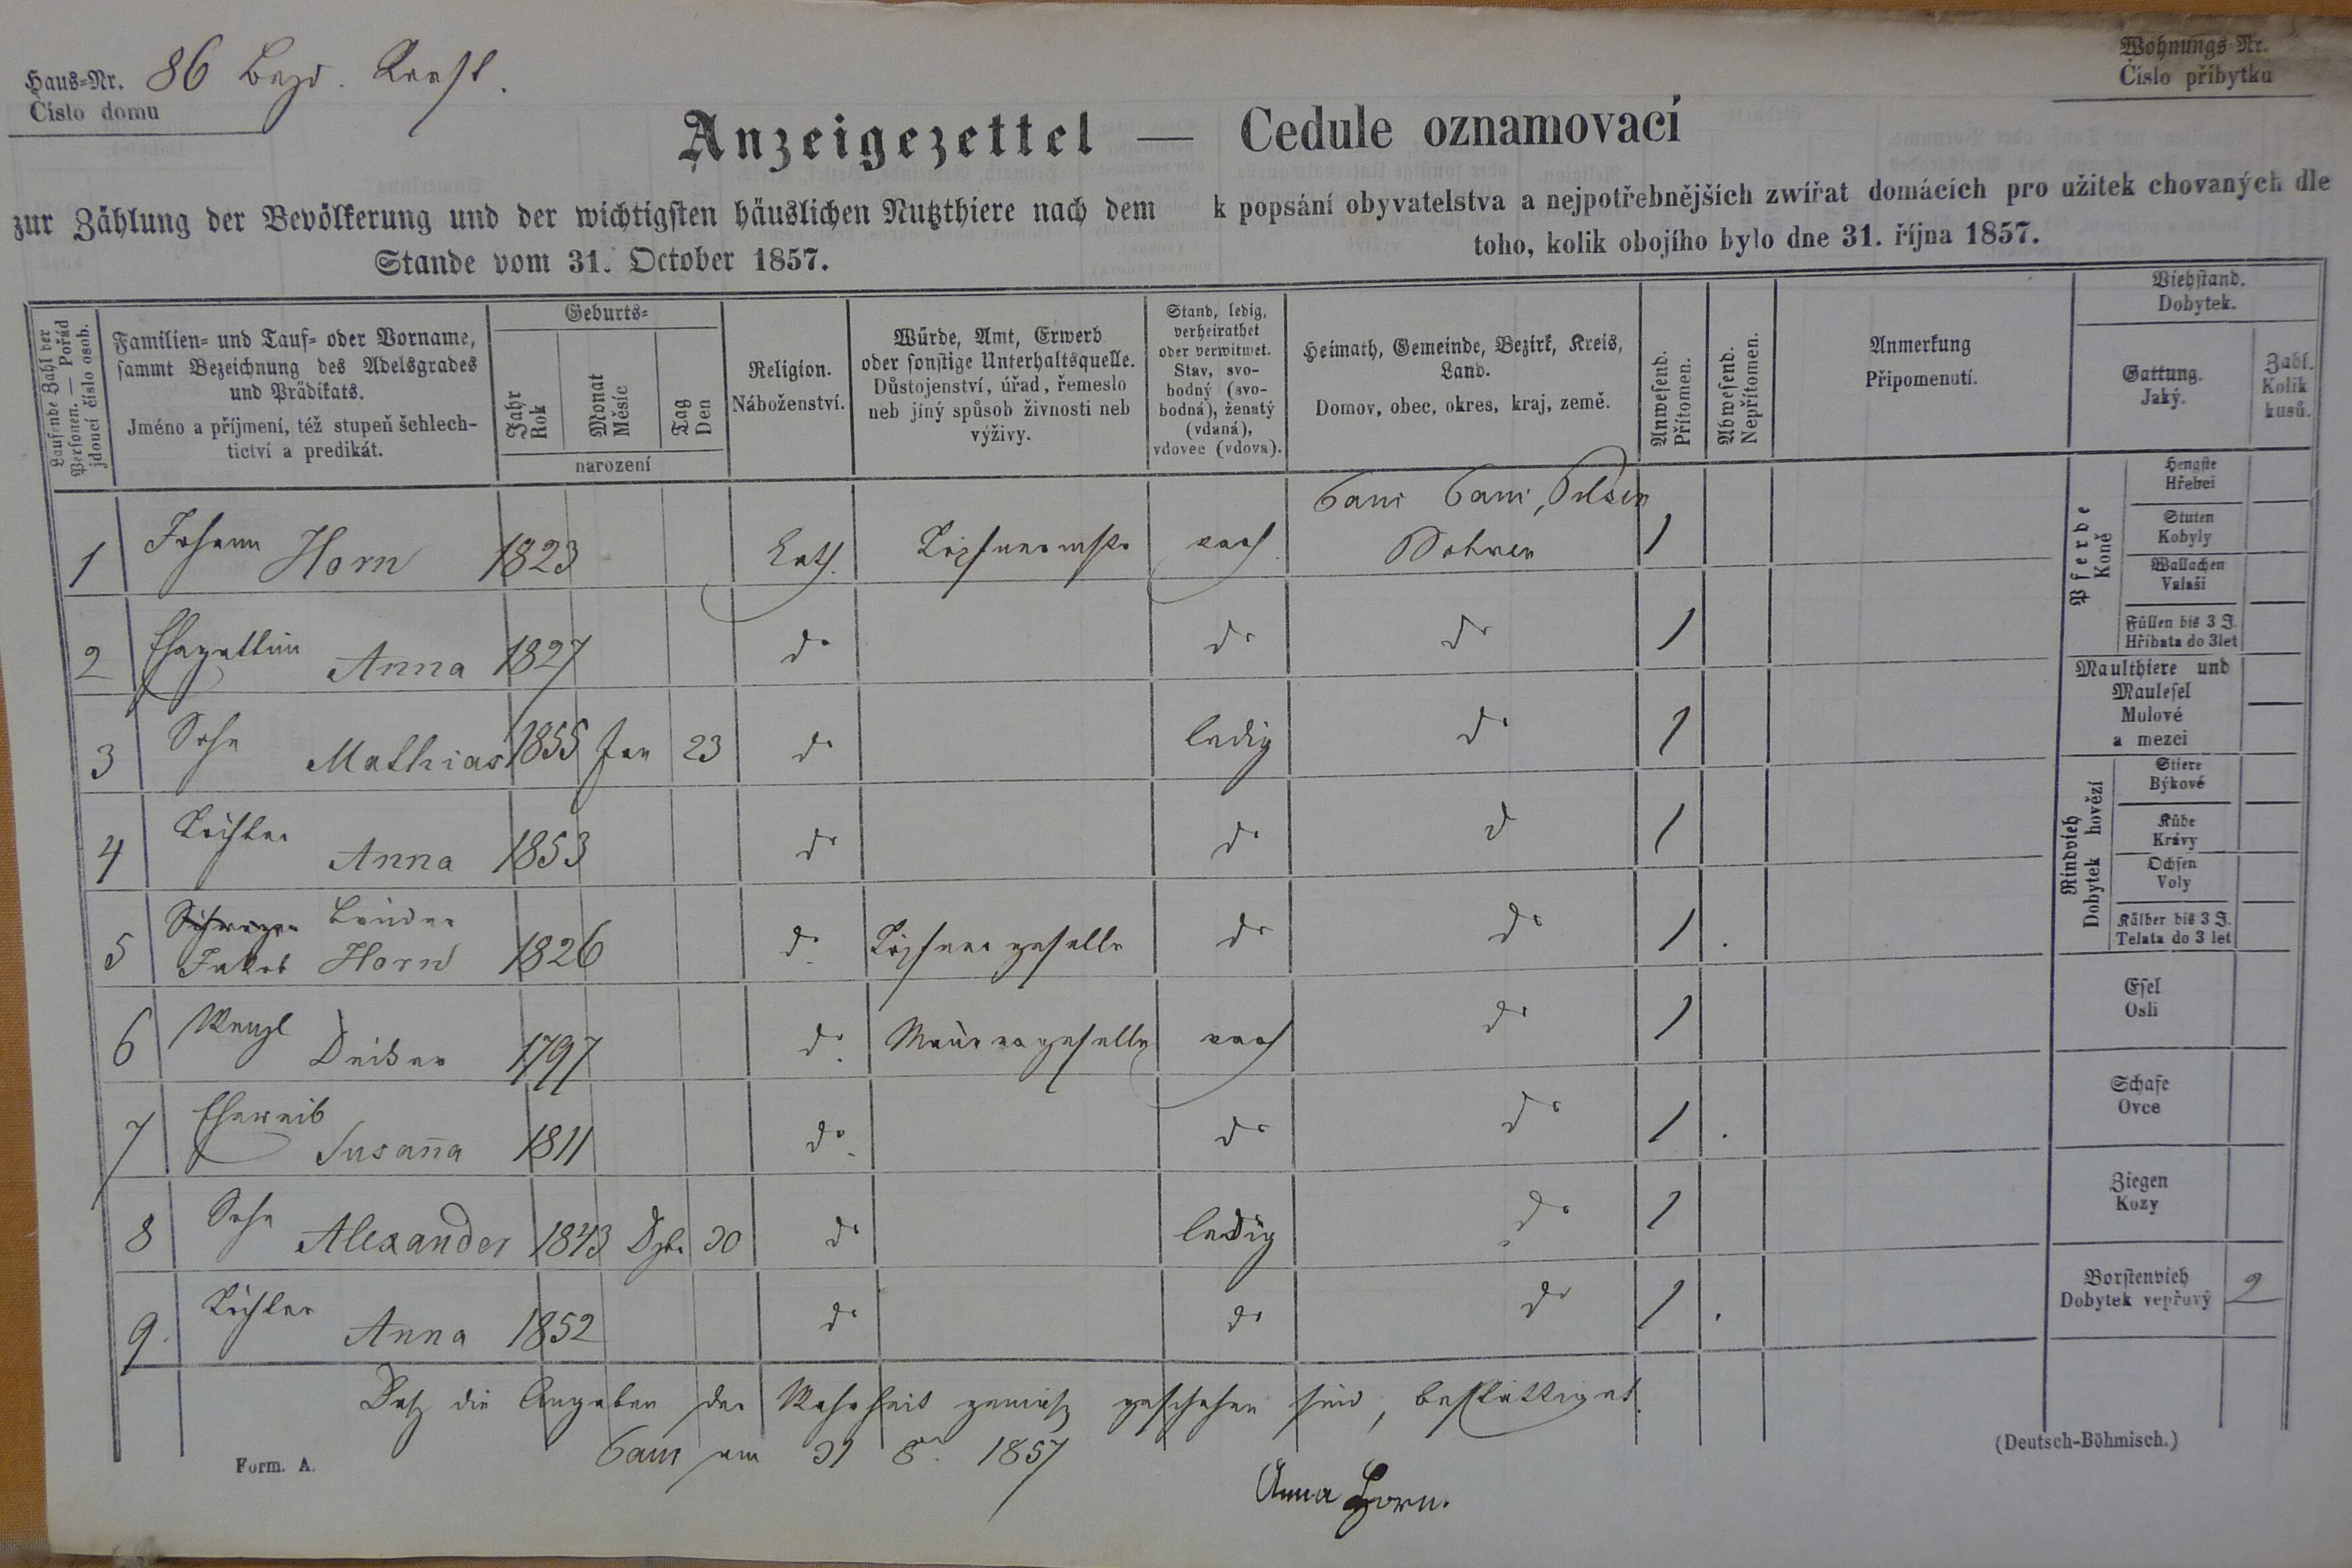 Haus-Nr. 86 Bezd. Vorst.
Číslo domu
Wohnungs-Nr.
Číslo příbytku
Anzeigezettel — Cedule oznamovací
zur Zählung der Bevölkerung und der wichtigsten häuslichen Nutzthiere nach dem
Stande vom 31. October 1857.
k popsání obyvatelstva a nejpotřebnějších zwířat domácích pro užitek chovaných dle
toho, kolik obojího bylo dne 31. října 1857.
Laufende Zahl der
Personen. — Pořád
jdoucí číslo osob.
Familien- und Tauf- oder Vorname,
sammt Bezeichnung des Adelsgrades
und Prädikats.
Jméno a příjmení, též stupeň šchlech-
tictví a predikát.
Geburts-
Jahr
Rok
Monat
Měsíc
Tag
Den
narození
Religion.
Náboženství.
Würde, Amt, Erwerb
oder sonstige Unterhaltsquelle.
Důstojenství, úřad, řemeslo
neb jiný spůsob živnosti neb
výživy.
Stand, ledig,
verheirathet
oder verwitwet.
Stav, svo-
bodný (svo-
bodná), ženatý
(vdaná),
vdovec (vdova).
Heimath, Gemeinde, Bezirk, Kreis,
Land.
Domov, obec, okres, kraj, země.
Anwesend.
Přítomen.
Abwesend.
Nepřítomen.
Anmerkung
Připomenutí.
Viehstand.
Dobytek.
Gattung.
Jaký.
Zahl.
Kolik
kusů.
1 Johann Horn 1823 Kath. Töpfermstr. verh. Pilsen Böhmen 1
2 Ehegattin Anna 1827 do do do 1
3 Sohn Mathias 1855 Jan 23 do ledig do 1
4 Tochter Anna 1853 do do d 1
5 Schwager Bruder
Jakob Horn 1826 do Töpfergeselle do do 1
6 Wenzl 1797 do Maurergeselle verh do 1
7 Eheweib Susanna 1811 do do do 1
8 Sohn Alexander 1843 Dzb. 30 do ledig do 1
9. Tochter Anna 1852 do do do 1
Pferde
Koně
Hengste
Hřebci
Stuten
Kobyly
Wallachen
Valaši
Füllen bis 3 J.
Hříbata do 3 let
Maulthiere und
Maulesel
Mulové
a mezci
Rindvieh
Dobytek hovězí
Stiere
Býkové
Kühe
Krávy
Ochsen
Voly
Kälber bis 3 J.
Telata do 3 let
Esel
Osli
Schafe
Ovce
Ziegen
Kozy
Borstenvieh
Dobytek vepřový 2
Daß die Angaben der Wahrheit gemäß geschehen sind, bestättiget.
am 31 8ber 1857
Anna Horn.
Form. A.
(Deutsch-Böhmisch.)